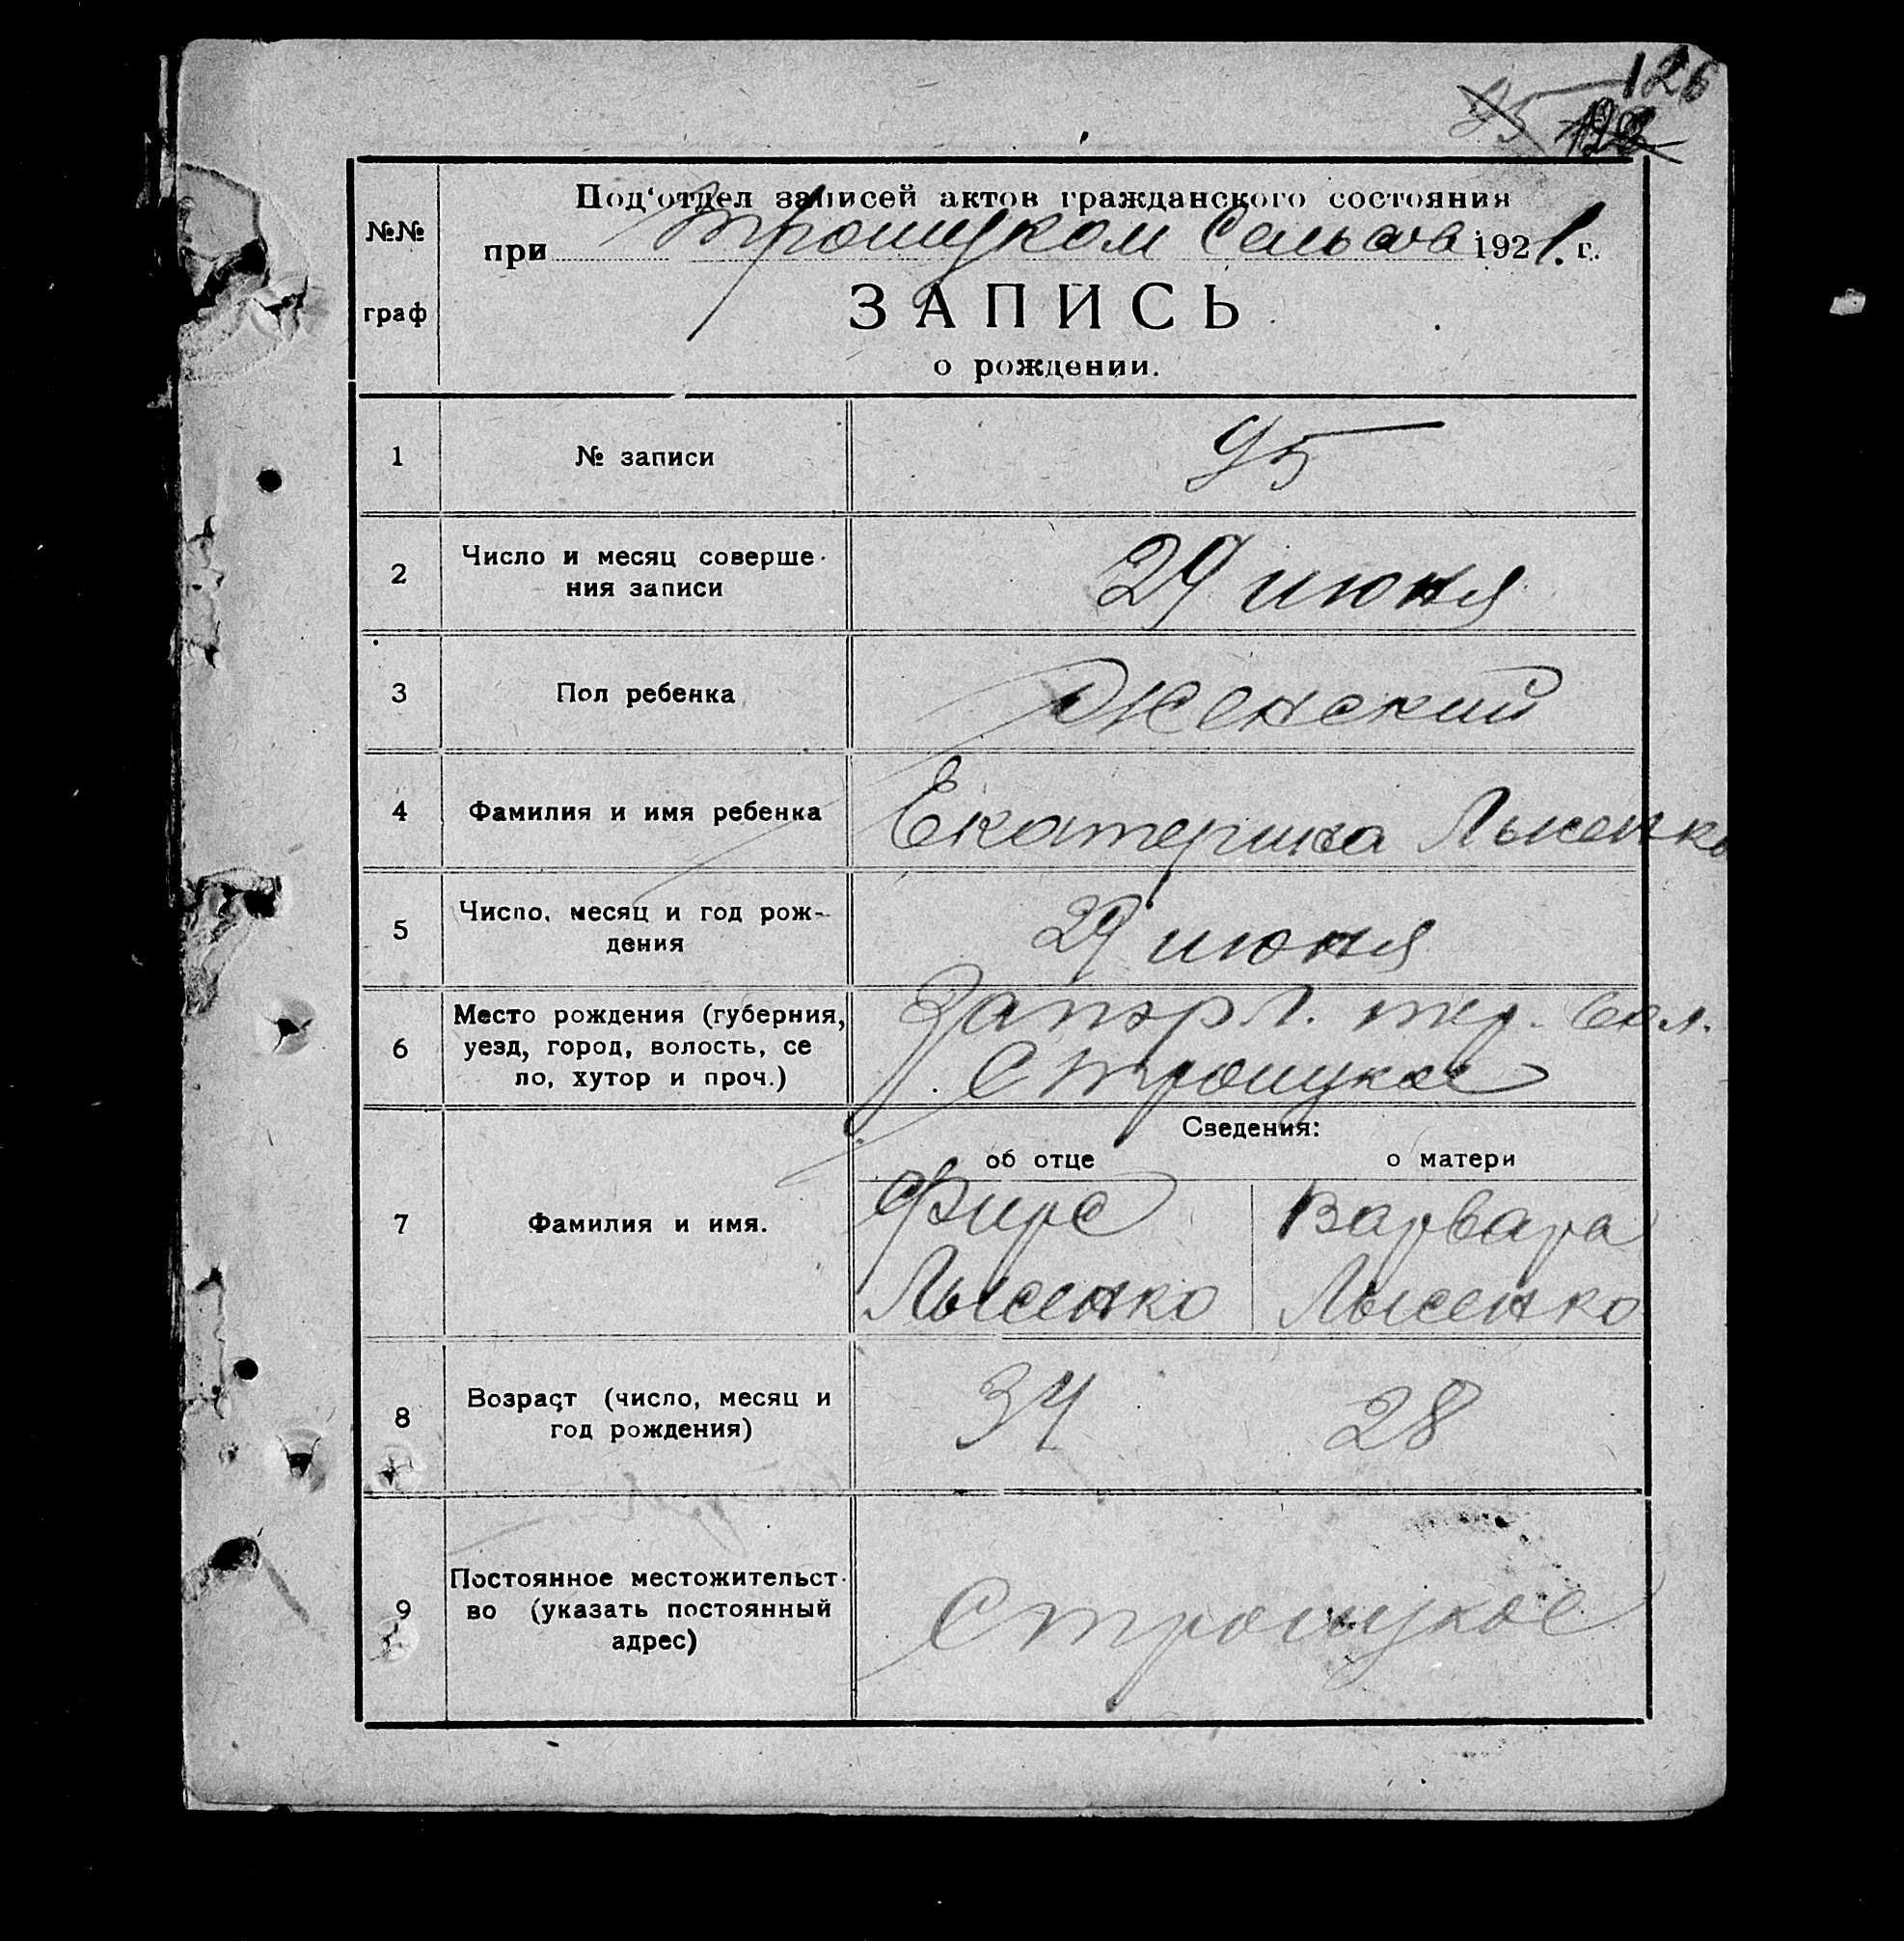 126
95 122
Под‘отдел записей актов гражданского состояния
№№
при Троицком Сельсов 1921. г.
граф
ЗАПИСЬ
о рождении.
1 № записи 95
2 Число и месяц соверше-
ния записи
29 июня
3 Пол ребенка Женский
4 Фамилия и имя ребенка Екатерина Лысенко
5 Число, месяц и год рож-
дения
29 июня
6 Место рождения (губерния,
уезд, город, волость, се
ло, хутор и проч.)
с Троицкое
Сведения:
об отце о матери
7 Фамилия и имя. Фирс Варвара
Лысенко Лысенко
8 Возраст (число, месяц и
год рождения)
34 28
9 Постоянное местожительст-
во (указать постоянный
адрес)
с Троицкое